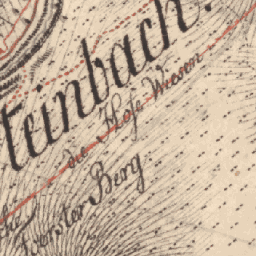 teinbach.
die Hofe Wiesen
che
Foerster Berg